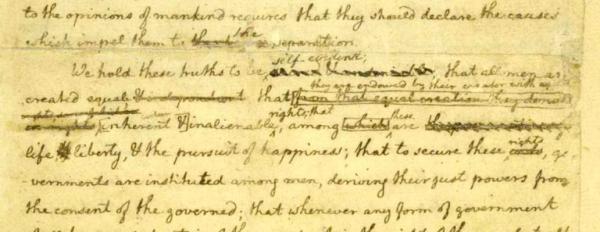 to the opinions of mankind requires that they should declare the causes
which impel them to the separation.
self-evident;
We hold these truths to be that all men are
they are endowed by their creator with
created equal & independent that from that equal creation they derive
rights; that these
inherent & inalienable, among which are
rights
life & liberty, & the pursuit of happiness; that to secure these ends, go-
-vernments are instituted among men, deriving their just powers from
the consent of the governed; that whenever any form of government